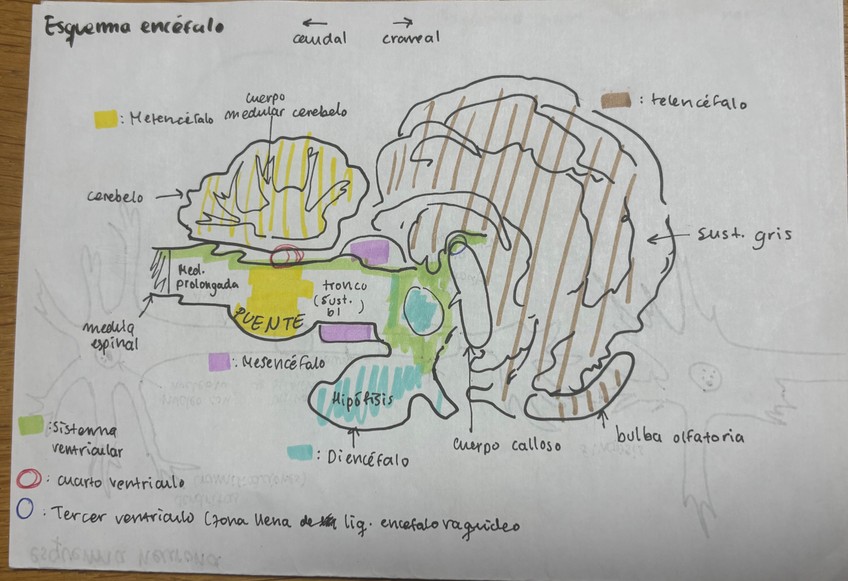 Esquema encéfalo
← caudal
→ craneal
: Metencéfalo
cuerpo
medular cerebelo
: telencéfalo
cerebelo →
← sust. gris
Med.
prolongada
tronco
(sust.
bl)
PUENTE
medula
espinal
: Mesencéfalo
Hipófisis
: Sistema
ventricular
: Diencéfalo
cuerpo calloso
bulba olfatoria
: cuarto ventriculo
: Tercer ventriculo (zona llena de liq. encefalo raquideo
esquema neurona